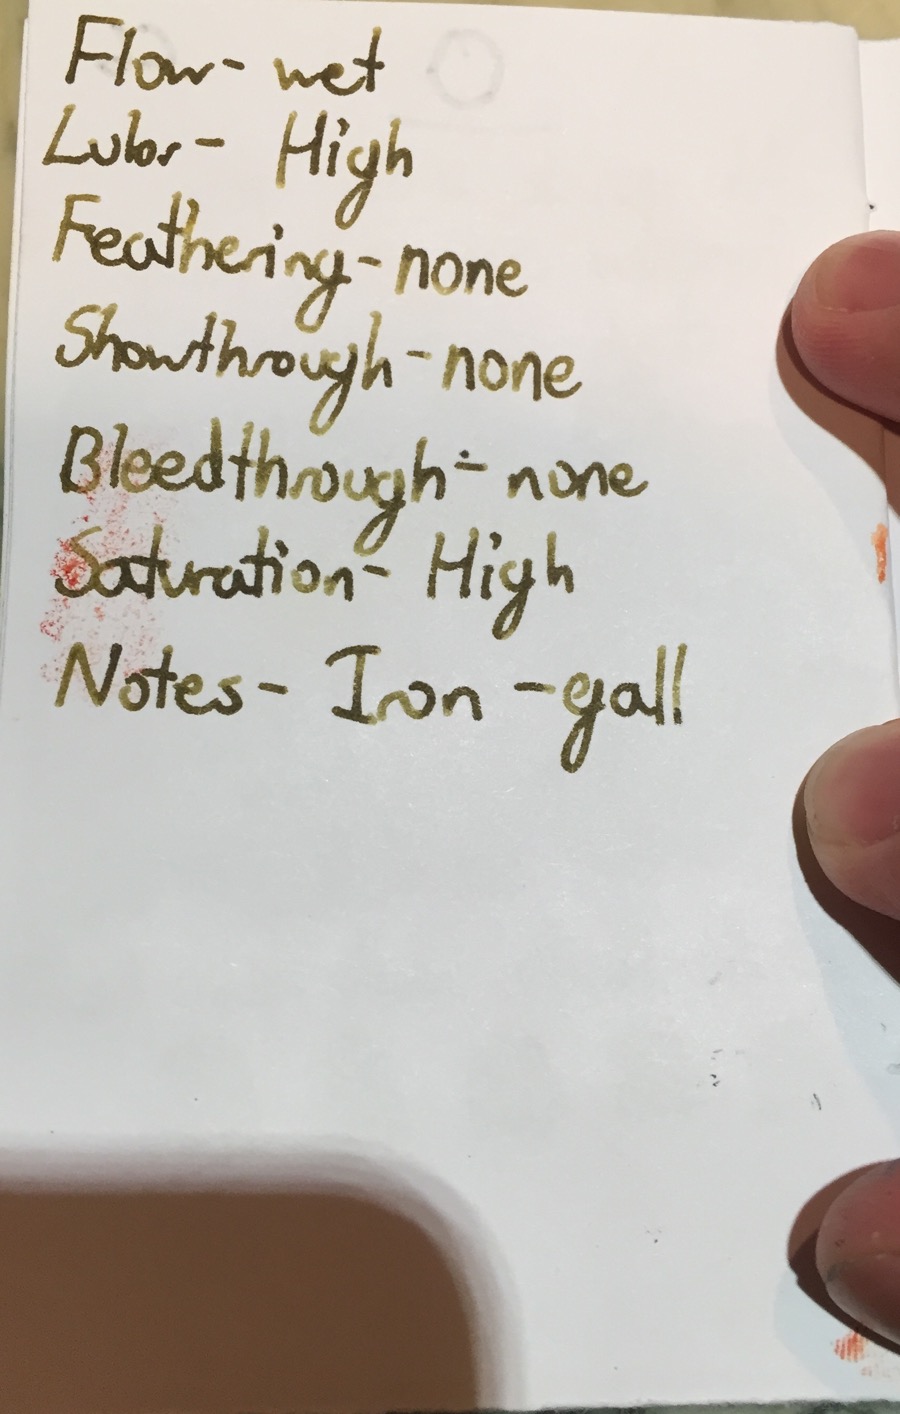 Flow- wet
Lube- High
Feathering- none
Showthrough- none
Bleedthrough- none
Saturation- High
Notes- Iron-gall